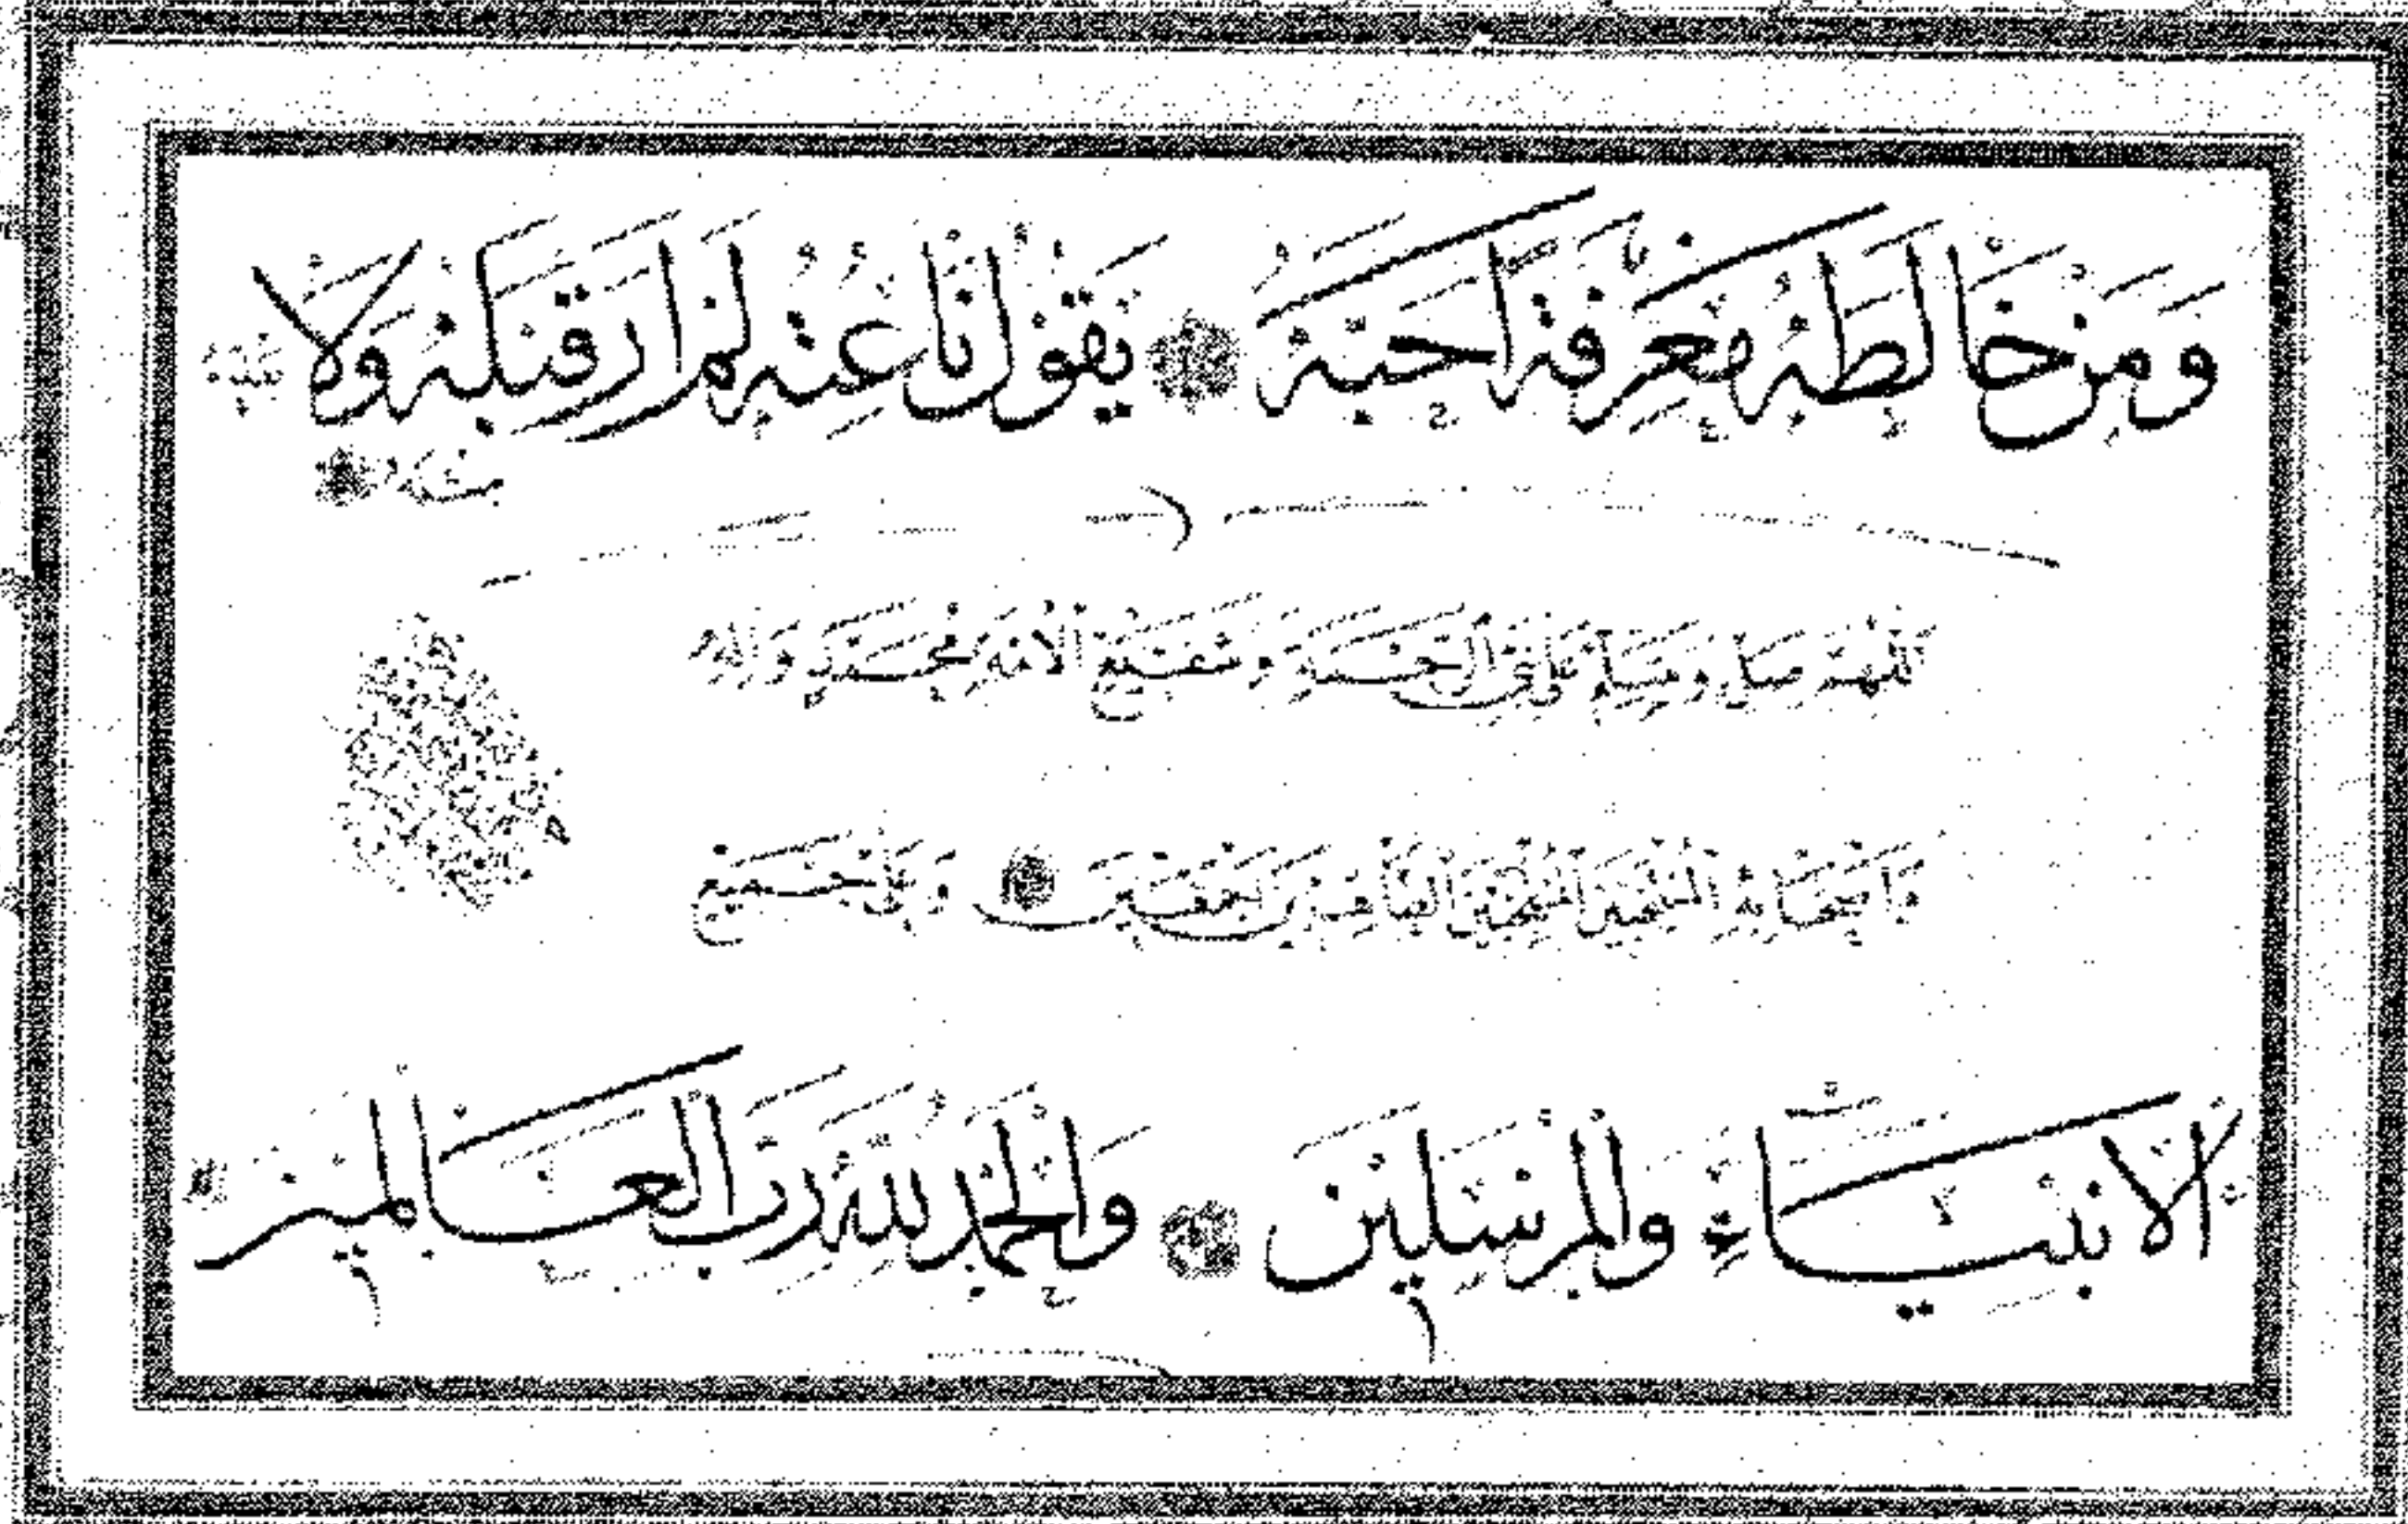 ومن خالطه معرفة احبه يقول ناعته لم ار قبله ولا
بعده مثله
اللهم صل وسلم على نبي الرحمة وشفيع الامة محمد واله
واصحابه اجمعين وعلى جميع
الانبياء والمرسلين والحمد لله رب العالمين